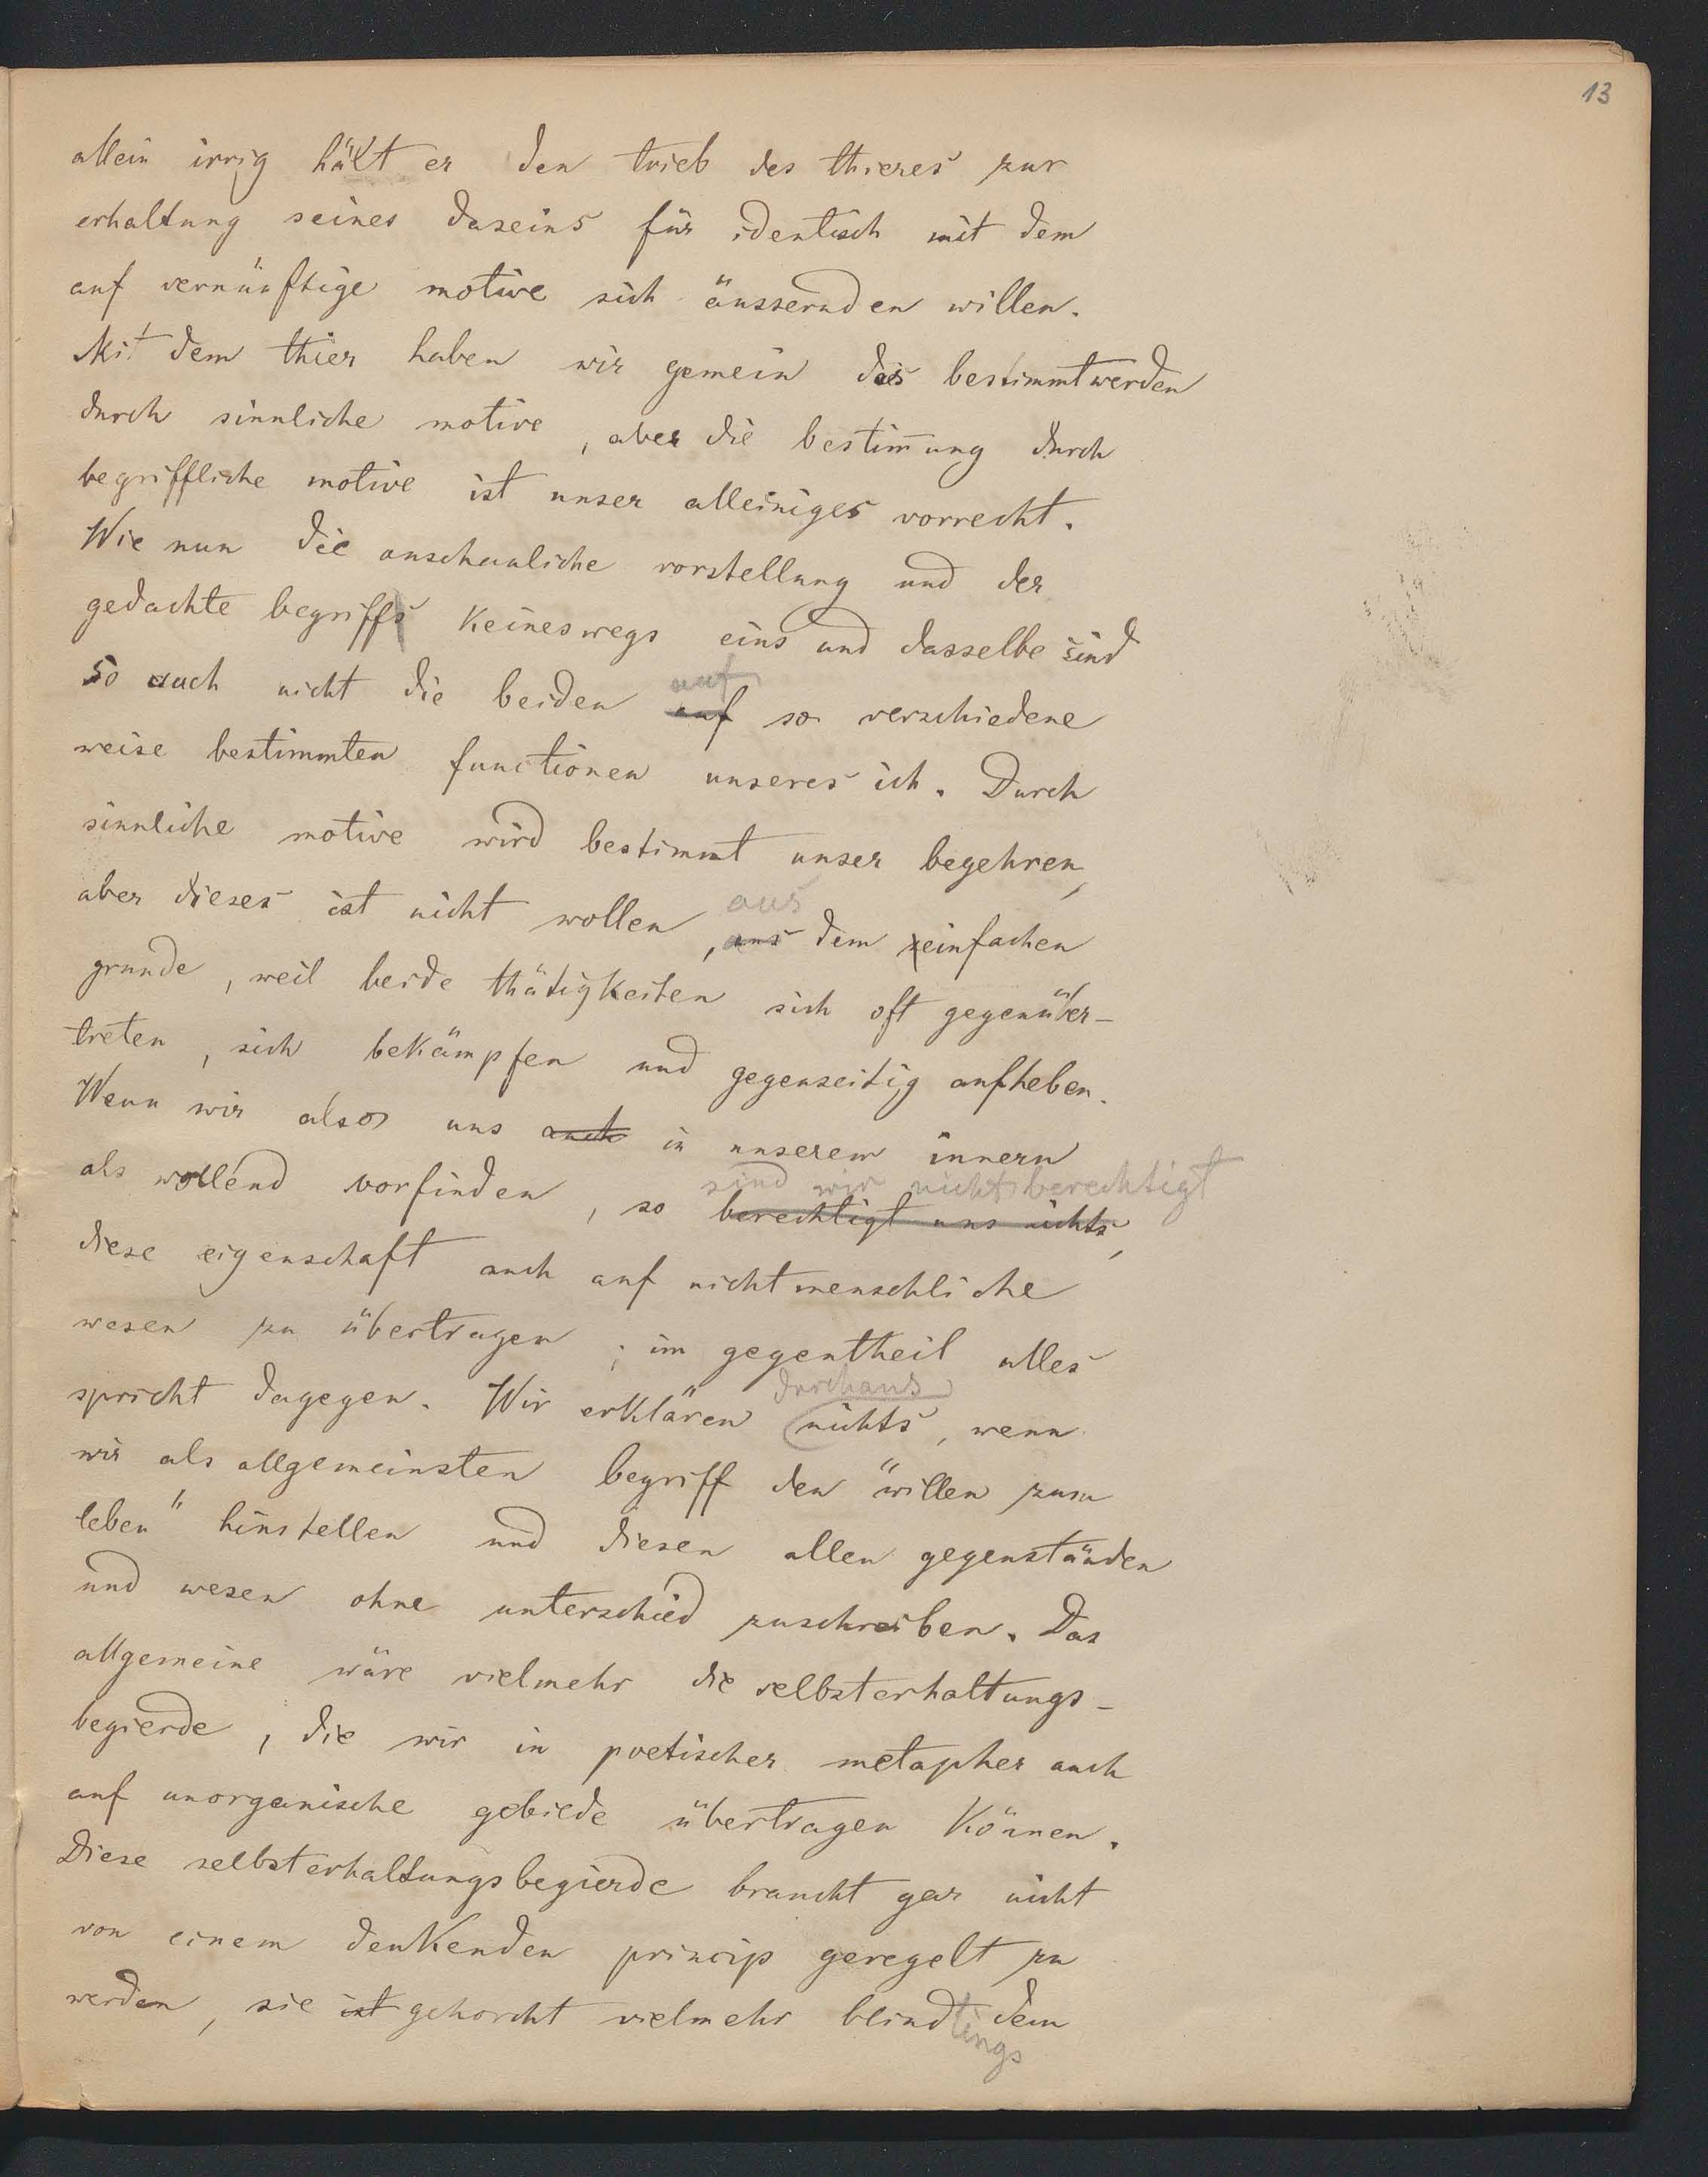 13
allein irrig hält er den trieb des thieres zur
erhaltung seines daseins für identisch mit dem
auf vernünftige motive sich äussernden willen.
Mit dem thier haben wir gemein das bestimmtwerden
durch sinnliche motive, aber die bestim̄ung durch
begriffliche motive ist unser alleiniges vorrecht.
Wie nun die anschauliche vorstellung und der
gedachte begriffs keineswegs eins und dasselbe sind
so auch nicht die beiden auf so verschiedene
auf
weise bestimmten functionen unseres ich. Durch
sinnliche motive wird bestimmt unser begehren,
aber dieses ist nicht wollen, aus dem einfachen
aus
grunde, weil beide thätigkeiten sich oft gegenüber-
treten, sich bekämpfen und gegenseitig aufheben.
Wenn wir also uns auch in unserem innern
als wollend vorfinden, so berechtigt uns nichts,
sind wir nicht berechtigt
diese eigenschaft auch auf nichtmenschliche
wesen zu übertragen; im gegentheil alles
spricht dagegen. Wir erklären nichts, wenn
durchaus
wir als allgemeinsten begriff den "willen zum
leben" hinstellen und diesen allen gegenständen
und wesen ohne unterschied zuschreiben. Das
allgemeine wäre vielmehr die selbsterhaltungs-
begierde, die wir in poetischer metapher auch
auf unorganische gebilde übertragen können.
Diese selbsterhaltungsbegierde braucht gar nicht
von einem denkenden princip geregelt zu
werden, sie ist gehorcht vielmehr blind dem
lings